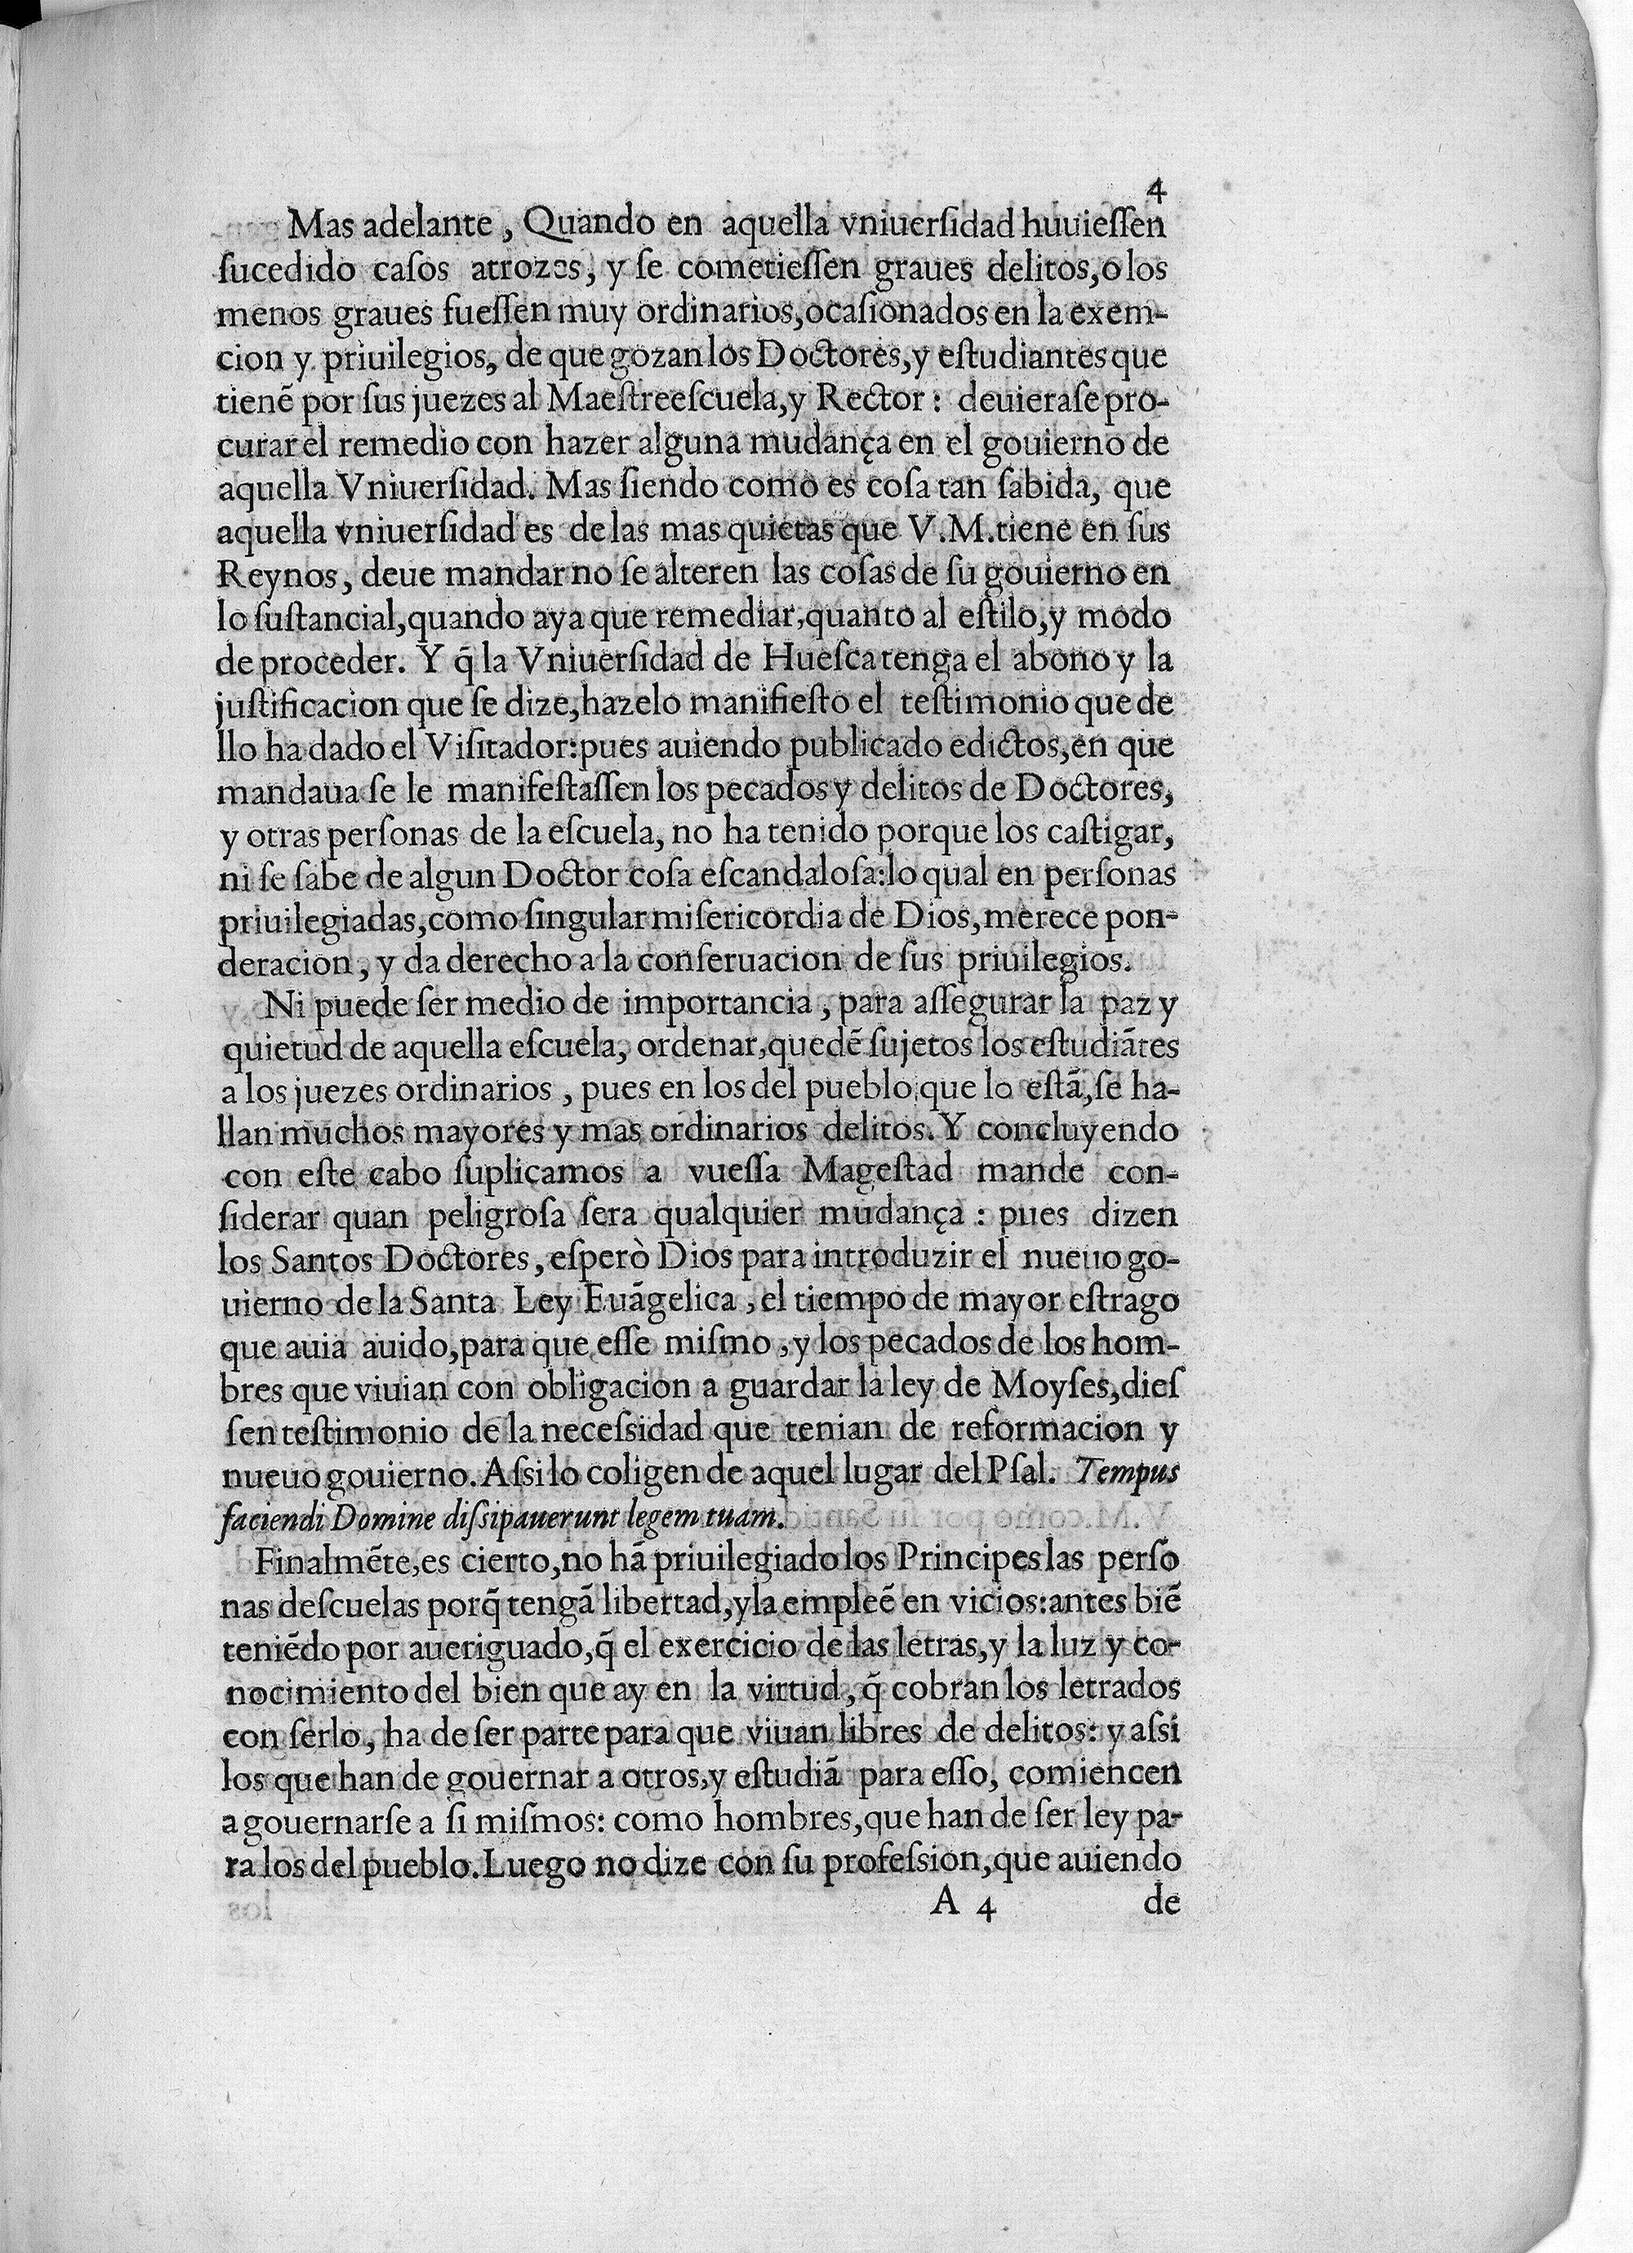 4
Mas adelante, Quando en aquella vniuerſidad huuieſſen
ſucedido caſos atrozes, y ſe cometieſſen graues delitos, o los
menos graues fueſſen muy ordinarios, ocaſionados en la exem-
cion y priuilegios, de que gozan los Doctores, y eſtudiantes que
tienẽ por ſus juezes al Maeſtreeſcuela, y Rector: deuieraſe pro-
curar el remedio con hazer alguna mudança en el gouierno de
aquella Vniuerſidad. Mas ſiendo como es coſa tan ſabida, que
aquella vniuerſidad es de las mas quietas que V.M. tiene en ſus
Reynos, deue mandar no ſe alteren las coſas de ſu gouierno en
lo ſuſtancial, quando aya que remediar, quanto al eſtilo, y modo
de proceder. Y q̃ la Vniuerſidad de Hueſca tenga el abono y la
juſtificacion que ſe dize, hazelo manifieſto el teſtimonio que de
llo ha dado el Viſitador: pues auiendo publicado edictos, en que
mandaua ſe le manifeſtaſſen los pecados y delitos de Doctores,
y otras perſonas de la eſcuela, no ha tenido porque los caſtigar,
ni ſe ſabe de algun Doctor coſa eſcandaloſa: lo qual en perſonas
priuilegiadas, como ſingular miſericordia de Dios, merece pon-
deracion, y da derecho a la conſeruacion de ſus priuilegios.
Ni puede ſer medio de importancia, para aſſegurar la paz y
quietud de aquella eſcuela, ordenar, quedẽ ſujetos los eſtudiãtes
a los juezes ordinarios, pues en los del pueblo que lo eſtã, ſe ha-
llan muchos mayores y mas ordinarios delitos. Y concluyendo
con eſte cabo ſuplicamos a vueſſa Mageſtad mande con-
ſiderar quan peligroſa ſera qualquier mudança: pues dizen
los Santos Doctores, eſperò Dios para introduzir el nueuo go-
uierno de la Santa Ley Euãgelica, el tiempo de mayor eſtrago
que auia auido, para que eſſe miſmo, y los pecados de los hom-
bres que viuian con obligacion a guardar la ley de Moyſes, dieſ
ſen teſtimonio de la neceſsidad que tenian de reformacion y
nueuo gouierno. Aſsi lo coligen de aquel lugar del Pſal. Tempus
faciendi Domine diſsipauerunt legem tuam.
Finalmẽte, es cierto, no hã priuilegiado los Principes las perſo
nas deſcuelas porq̃ tengã libertad, y la empleẽ en vicios: antes biẽ
teniẽdo por aueriguado, q̃ el exercicio de las letras, y la luz y co-
nocimiento del bien que ay en la virtud, q̃ cobran los letrados
con ſerlo, ha de ſer parte para que viuan libres de delitos: y aſsi
los que han de gouernar a otros, y eſtudiã para eſſo, comiencen
a gouernarſe a ſi miſmos: como hombres, que han de ſer ley pa-
ra los del pueblo. Luego no dize con ſu profeſsion, que auiendo
A 4 de